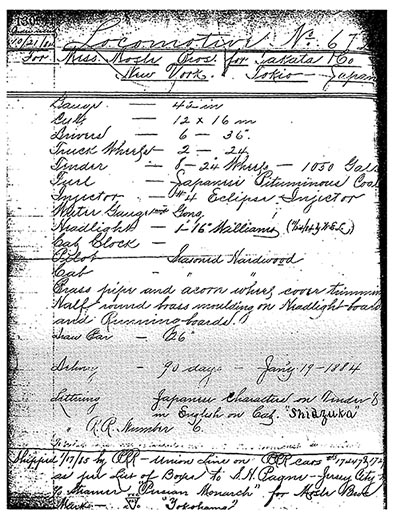 Locomotive No. 67
For Mess. Mosle Bros. for Takata & Co
New York. Tokio — Japan
Gauge — 42 in
Cyls — 12 x 16 in
Drivers — 6 — 36"
Truck Wheels — 2 — 24
Tender — 8 - 24" Wheels — 1050 Gals
Fuel — Japanese Bituminous Coal
Injector — #4 Eclipse Injector
Water Gauge Cong.
Headlight — 1-16" Williams
Cab Clock —
Pilot — Seasoned Hardwood
Cab — " "
Brass pipe and acorn wheel cover trimming
Half round brass moulding on Headlight board
and Runningboards.
Draw Bar — 26"
Delivery — 90 days — Jan'y 19-1884
Lettering Japanese Characters on Tender &
in English on Cab. "Shidzuka"
" R.R. Number 6.
Shipped by PRR - Union Line on PRR cars
as per List of Boxes to Jersey City
Steamer "Persian Monarch" for Mosle Bros
Mark — Yokohama